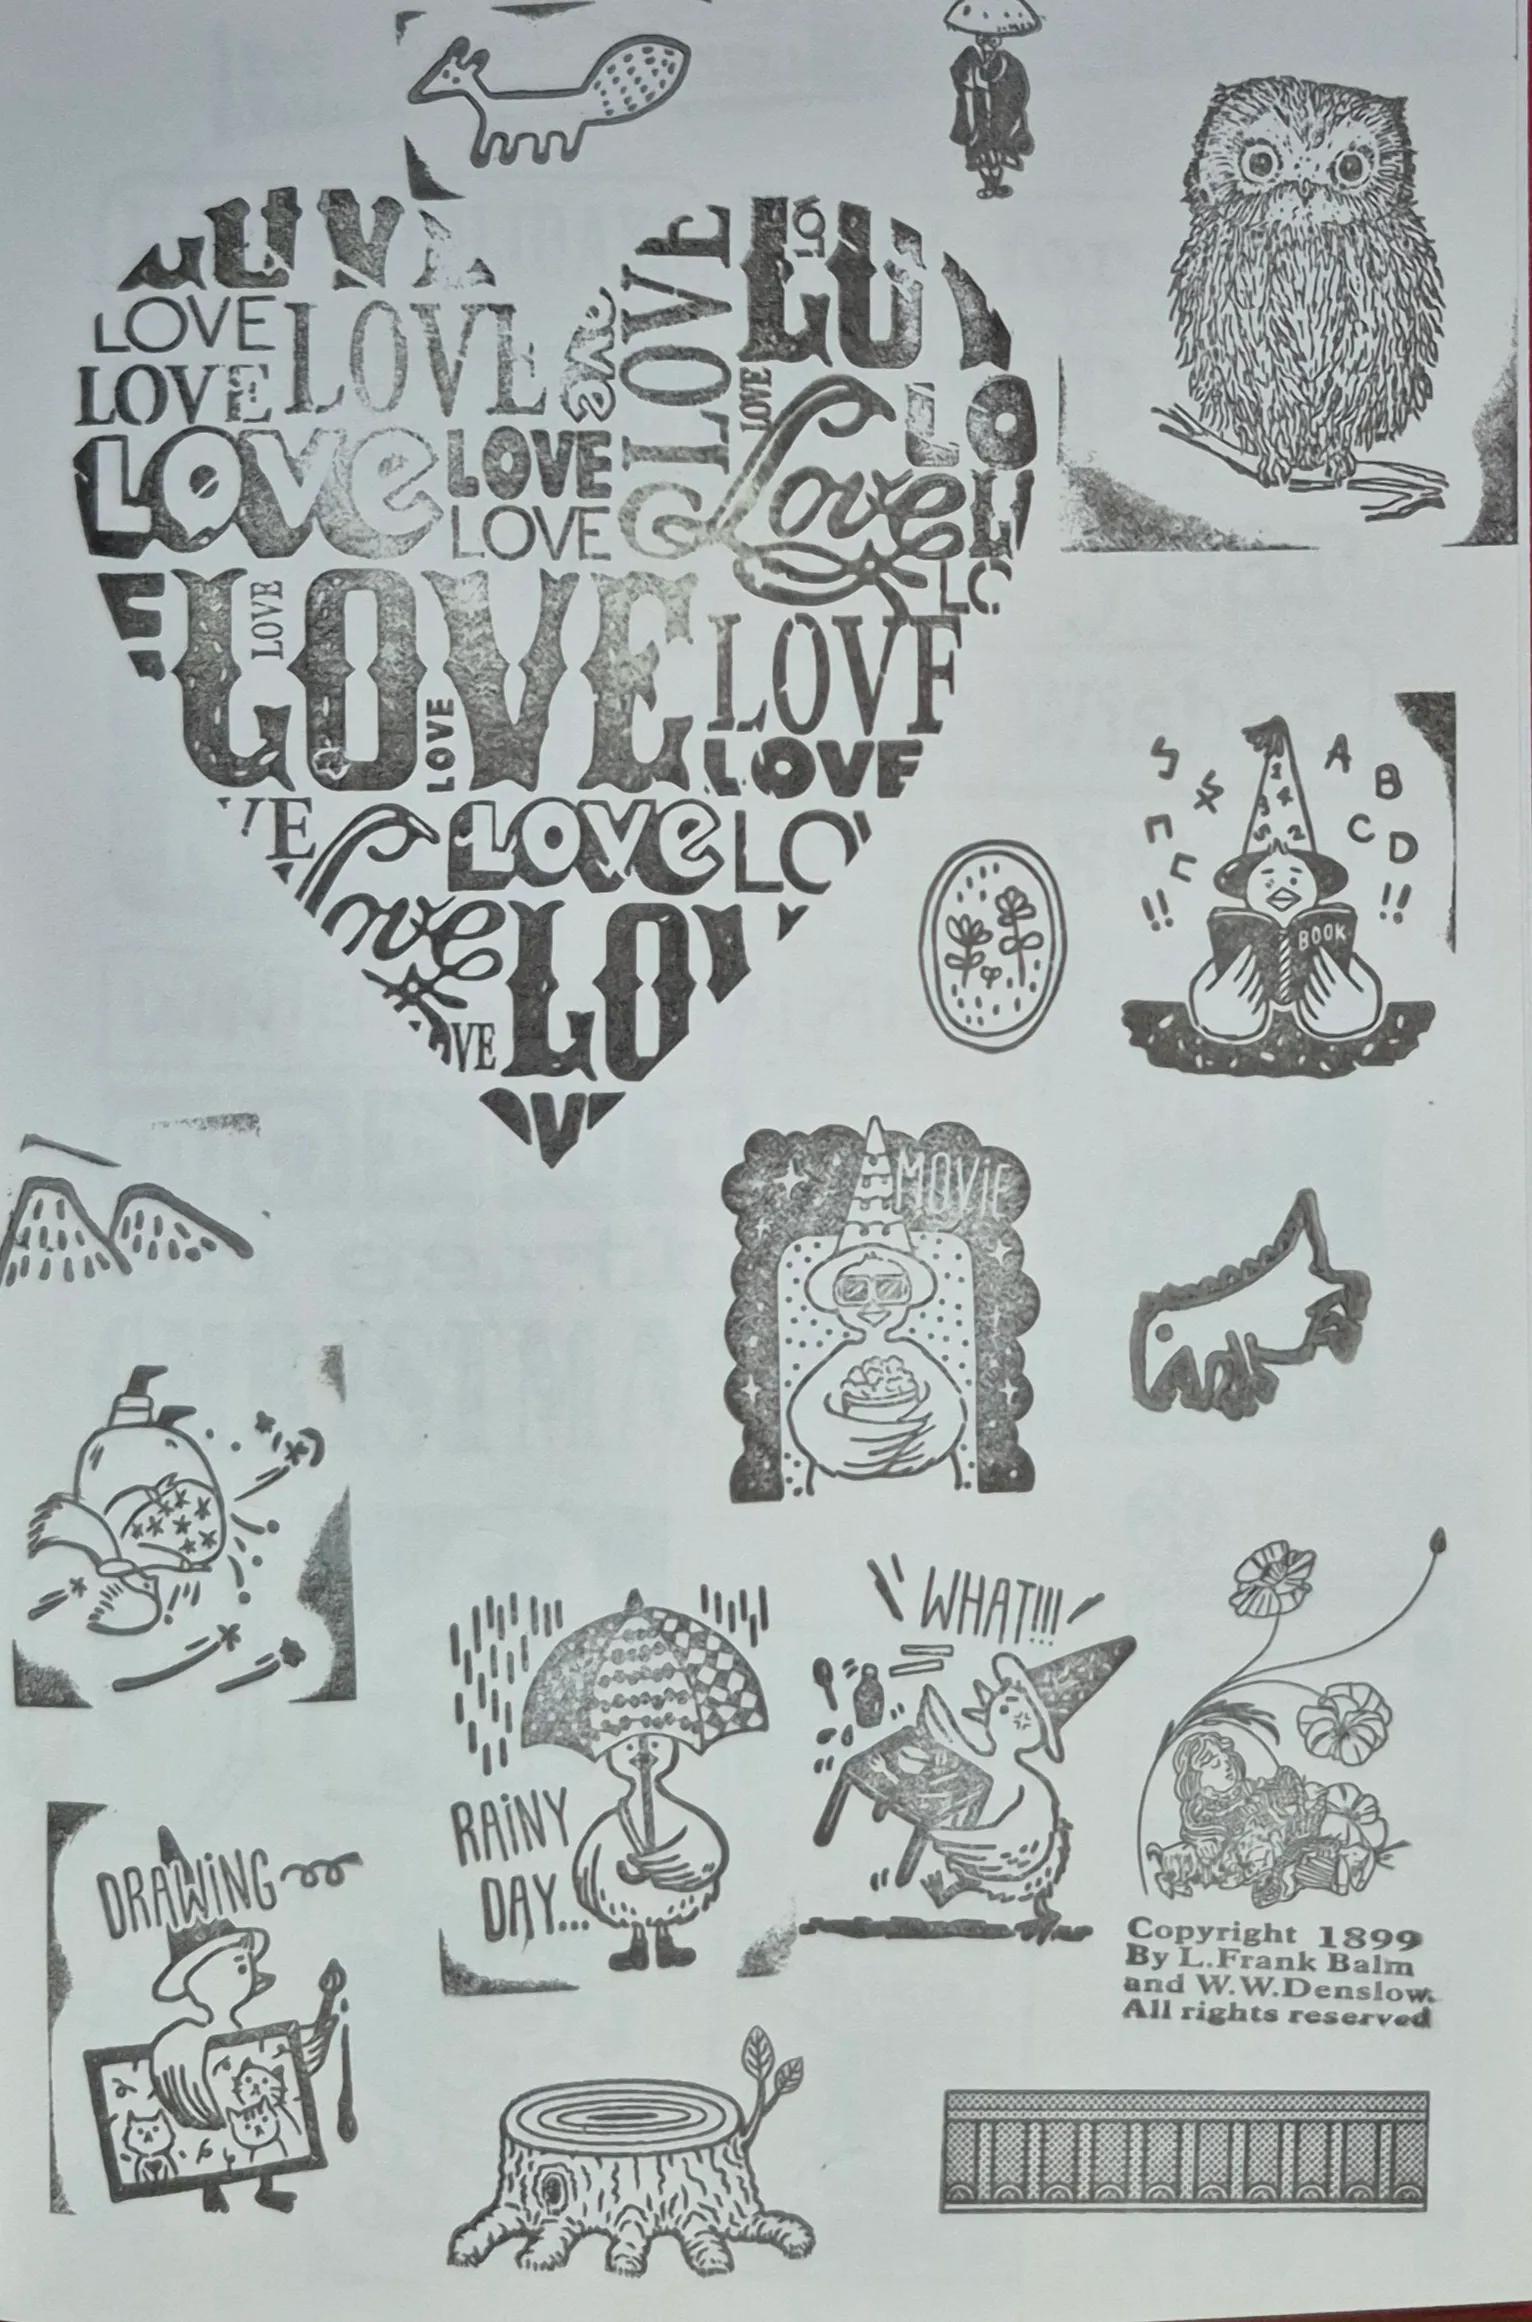 LOVE
LOVE
LOVE
LOVE
LOVE
LOVE
LOVE
Love
LOVE
LOVE
Love
LO
LO
LOVE
LOVE
LOVE
LOVE
LOVE
VE
Love
LO
Love
LO
VE
A
B
C
D
!!
!!
BOOK
MOViE
WHAT!!!
RAiNY
DAY...
DRAWiNG
Copyright 1899
By L.Frank Balm
and W.W.Denslow.
All rights reserved